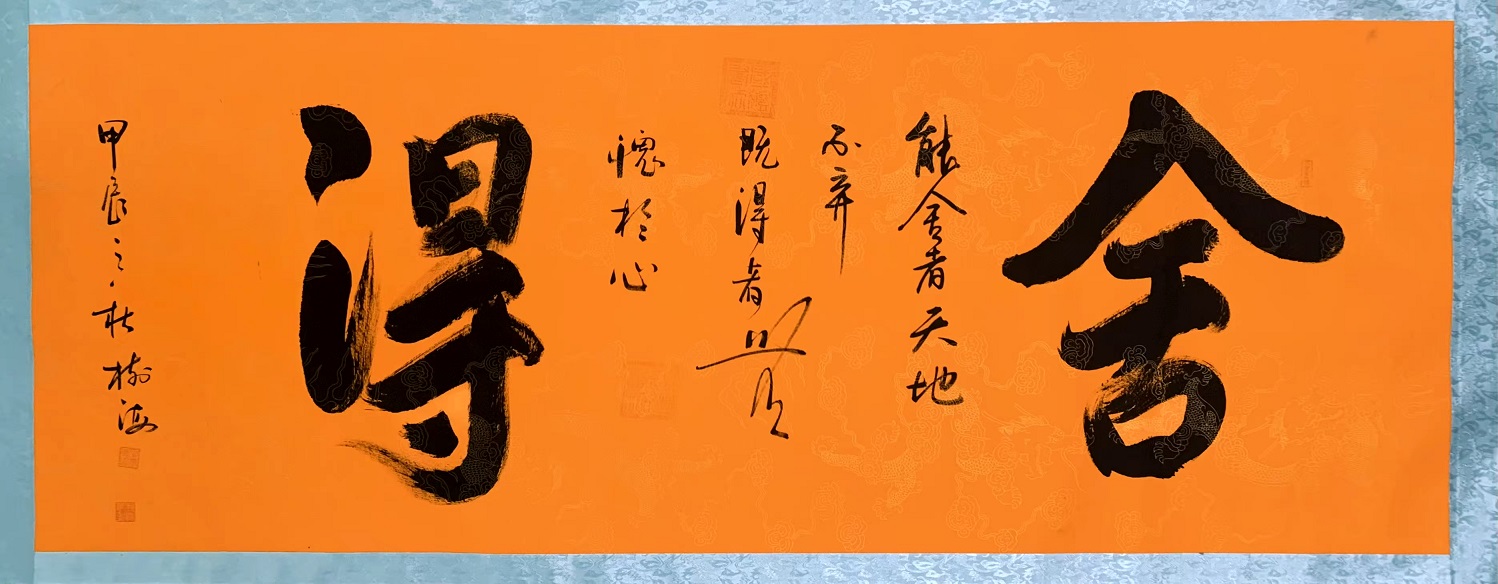 舍
能舍者天地
不弃
既得者
愧於心
得
甲辰之秋樹海